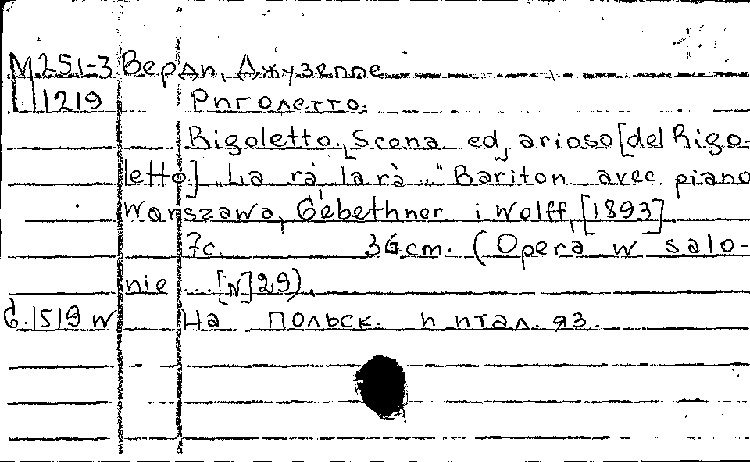 М251-3 Верди, Джузеппе
1219 Риголетто.
Rigoletto, Scena ed arioso [del Rigo-
letto] „La rà, la rà..." Bariton avec piano
Warszawa, Gebethner i Wolff, [1893]
7с. 36 cm. (Opera w salo-
nie ... [N] 29).
G.1519 W На польск. и итал. яз.